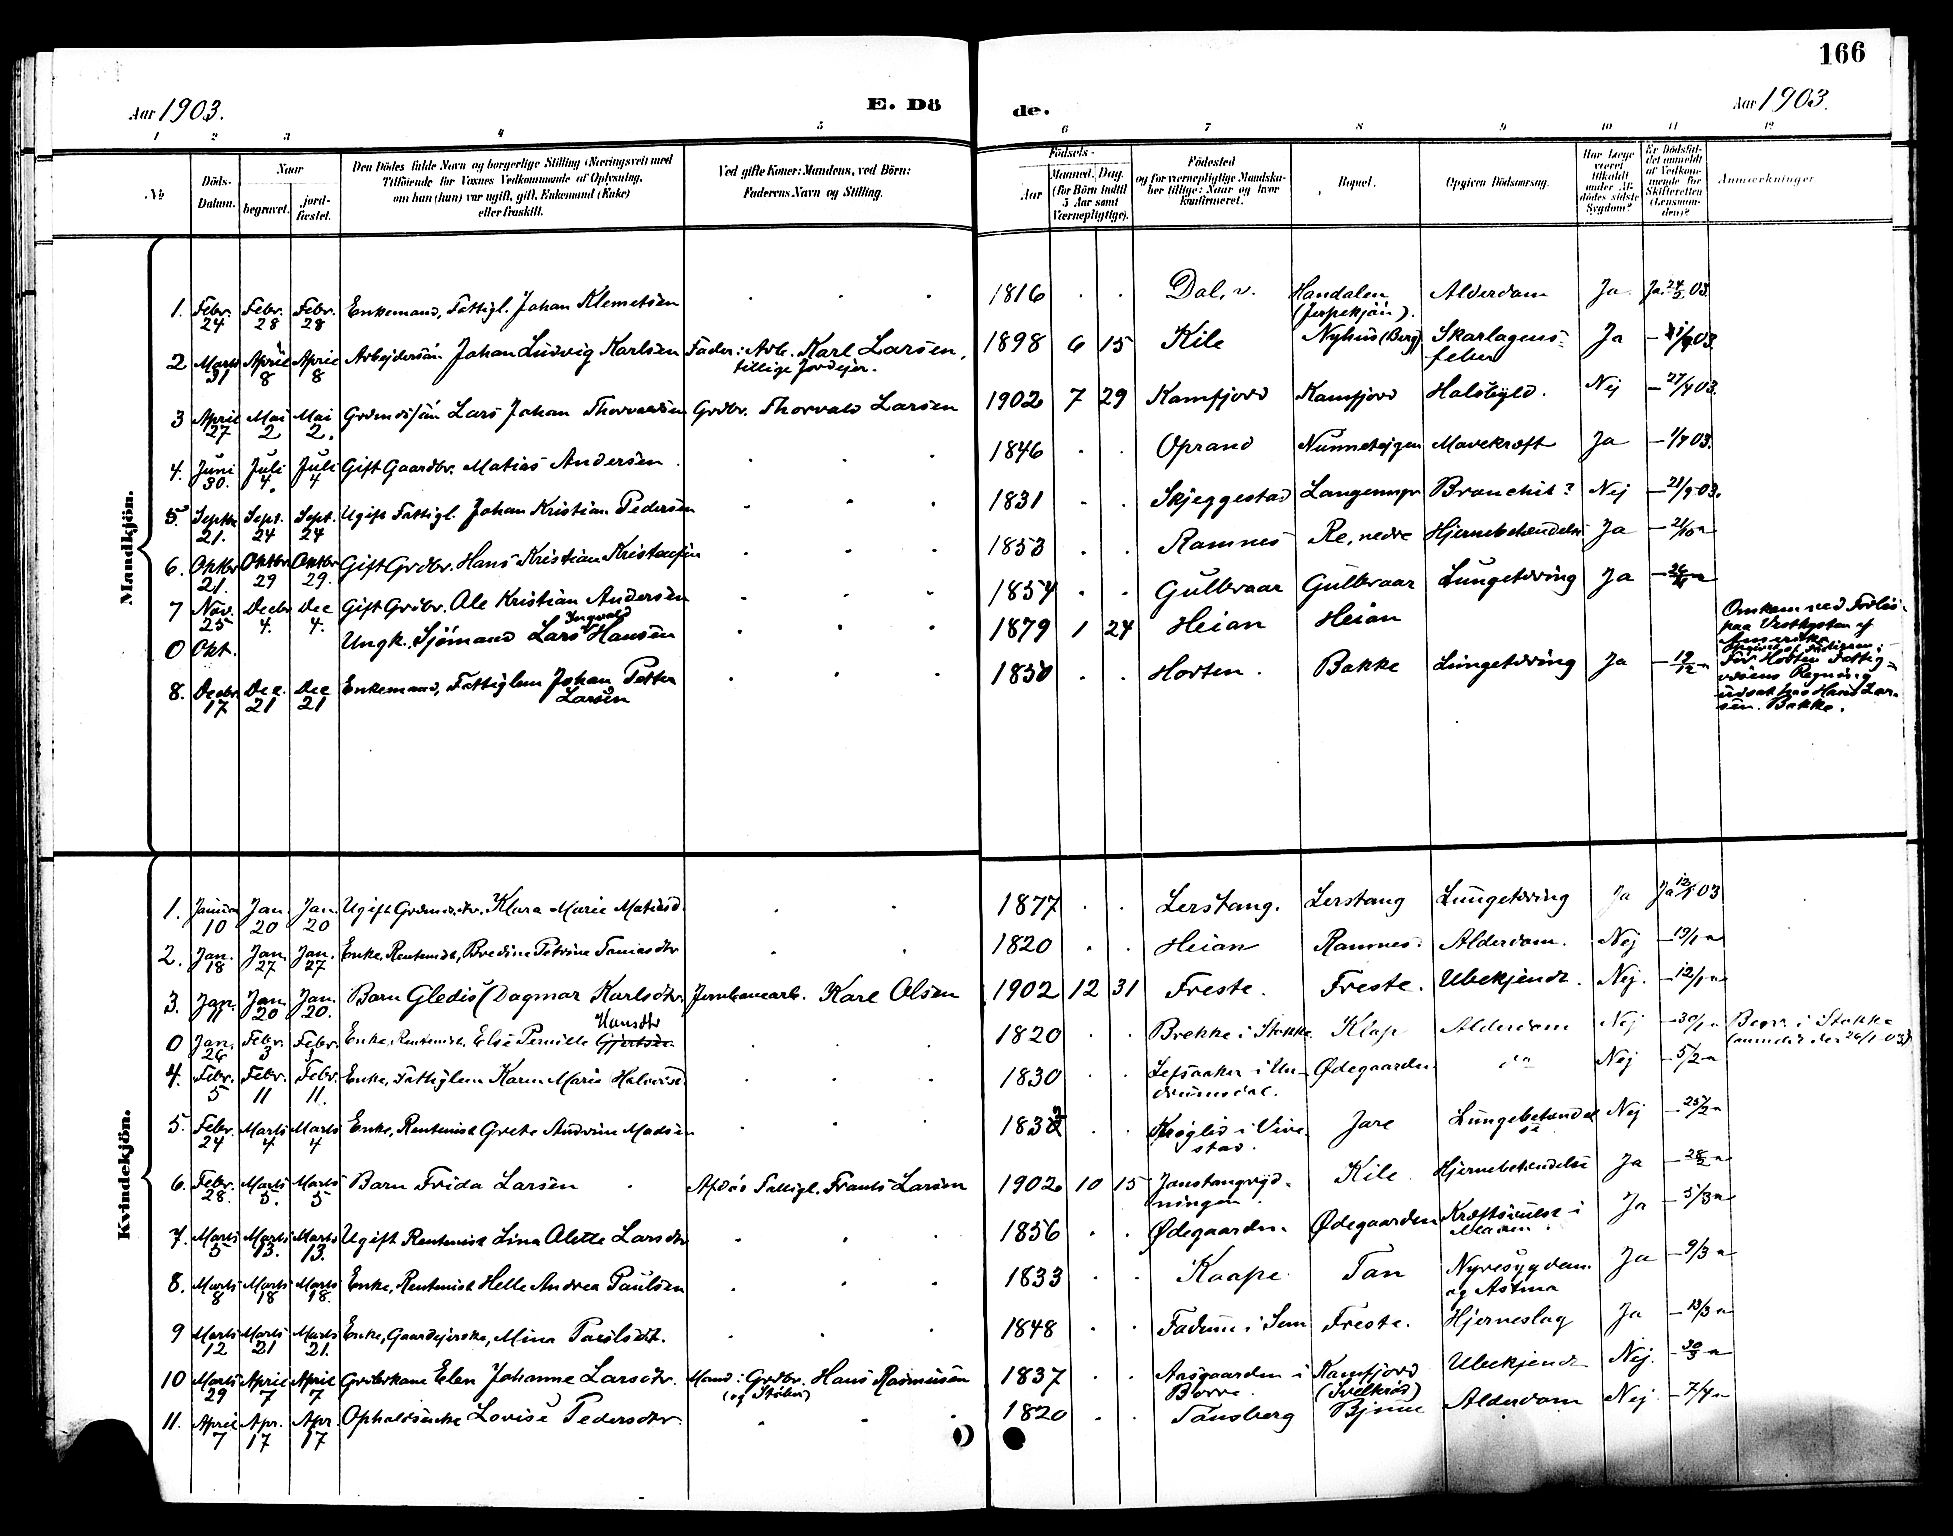 166
Aar 1903.
E. Dö
de.
Aar 1903.
1 2 3 4 5 6 7 8 9 10 11 12
No
Döds-
Datum.
Naar
begravet.
jord-
fæstet.
Den Dödes fulde Navn og borgerlige Stilling (Næringsvei) med
Tilföiende for Voxnes Vedkommende af Oplysning,
om han (hun) var ugift, gift, Enkemand (Enke)
eller fraskilt.
Ved gifte Koner: Mandens, ved Börn:
Faderens Navn og Stilling.
Födsels-
Aar
Maaned. Dag.
(for Börn indtil
5 Aar samt
Værnepligtige).
Födested
og for værnepligtige Mandska-
ber tillige: Naar og hvor
konfirmeret.
Bopæl.
Opgiven Dödsaarsag.
Har Læge
været
tilkaldt
under Af-
dödes sidste
Sygdom?
Er Dödsfal-
det anmeldt
af Vedkom-
mende for
Skifteretten
(Lensman-
den)?
Anmærkninger
Mandkjön.
1. Febr. 24 Febr. 28 Febr. 28 Enkemand, Fattigl. Johan Klemetsen 1816 Dal, v. Handalen Alderdom Ja Ja 03.
2 Marts 31 April 8 April 8 Arbejdersön Johan Ludvig Karlsen Fader: Arb. Karl Larsen, 1898 6 15 Kile Nyhus (Berg) Skarlagens- Ja 03.
tillige Jordejer. feber
3 April 27 Mai 2 Mai 2. Grdmdssön Lars Johan Thorvaldsen Grdbr. Thorvald Larsen 1902 7 29 Kamfjord Kamfjord Halsbyld. Nej - 27/4 03.
4. Juni 30. Juli 4. Juli 4 Gift Gaardbr. Matias Andersen 1846 Oprand Mavekræft Ja - 1/7 03.
5. Septbr 21. Sept. 24 Sept. 24 Ugift Fattigl. Johan Kristian Pedersen 1831 Skjeggestad Bronchit? Nej - 21/9 03.
6. Oktbr 21. Oktbr 29 Oktbr 29. Gift Grdbr. Hans Kristian Kristensen 1853 Ramnes Re, nedre Hjernebetændelse Ja - 21/10 "
7 Nov. 25 Decbr 4. Dec 4. Gift Grdbr. Ole Kristian Andersen 1854 Gulbraar Gulbraar Lungetæring Ja
0 Okt. Ungk. Sjömand Lars Ingvald Hansen 1879 1 24 Heian Heian Omkom ved Forlis
paa Vestkysten af
Amerika
8. Decbr 17 Dec. 21 Dec 21 Enkemand, Fattiglem Johan Petter Larsen 1850 Horten. Bakke Lungetæring Ja - 19/12 "
For Horten Fattig-
væsens Regning
udsat hos Hans Lar-
sen. Bakke.
Kvindekjön.
1. Januar 10 Jan. 20 Jan. 20 Ugift Grdmd.dtr. Klara Marie Matiasd. 1877 Lerstang. Lerstang Lungetæring Ja Ja 03
2. Jan. 18 Jan. 27 Jan. 27 Enke, Rentenist, Bredine Petrine Tomasdtr 1820 Heian Ramnes. Alderdom. Nej - 19/1 "
3. Jan. 11 Jan. 20 Jan. 20. Barn Gledis (Dagmar Karlsdtr. Jernbanearb. Karl Olsen 1902 12 31 Freste. Freste. Ubekjendt. Nej. - 12/1 "
0 Jan. 26 Febr. 3 Febr. Enke, Rentenist, Else Pernille Hansdtr 1820 Brekke i Stokke Klop Alderdom Nej - 30/1 " Begr. i Stokke
(anmeldt der 26/1 03)
4. Febr. 5 Febr. 11 Febr. 11. Enke, Fattiglem Karen Marie 1830 i Un- Ødegaarden " Nej - 5/2 "
drumsdal.
5. Febr. 24 Marts 4 Marts 4 Enke, Rentenist Grete Andrine Madsen i Vive- Jare Lungebetændel Nej - 25/2 "
stad. se
6. Febr. 28. Marts 5. Marts 5 Barn Frida Larsen Afdøs Fattigl. Frants Larsen 1902 10 15 Kile Hjernebetændelse Ja - 28/2 "
7. Marts 5 Marts 13. Marts 13. Ugift Rentenist Lina Olette Larsdtr 1856 Ødegaarden Ødegaarden Kræftsvulst i Ja - 5/3 "
Maven.
8. Marts 8 Marts 18 Marts 18. Enke, Rentenist Helle Andrea Paulsen 1833 Kaape Tan Nyresygdom Ja - 9/3 "
og Astma
9 Marts 12 Marts 21 Marts 21. Enke, Gaardejerske, Mina 1848 Fadum i Sem Freste. Hjerneslag Ja - 13/3 "
10 Marts 29 April 7 April 7 Grdbrkone Elen Johanne Larsdtr. Mand: Grdbr. Hans Rasmusen 1837 Aasgaarden i Kamfjord Ubekjendt Nej. - 30/3 "
Borre.
11. April 7 Apr. 17 Apr 17 Opholdsenke Lovise Pedersdtr. 1820 Tönsberg Bjune Alderdom Nej - 7/4 "